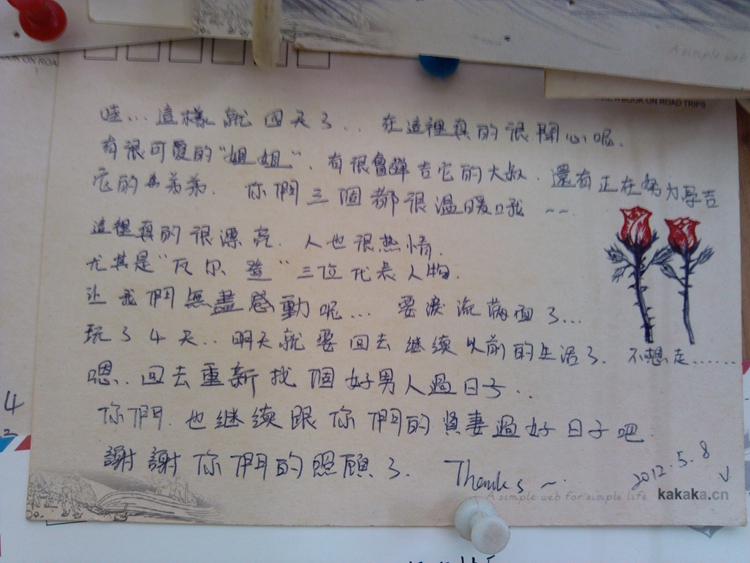 A simple web
NEWBOOK ON ROAD TRIPS
哇... 這樣就四天了.. 在這裡真的很開心呢.
有很可愛的"姐姐". 有很會彈吉它的大叔. 還有正在努力學吉
它的弟弟. 你們三個都很溫暖哦 ~~
這裡真的很漂亮. 人也很热情.
尤其是"瓦尔登"三位代表人物.
让我們無盡感動呢... 要淚流滿面了...
玩了4天.. 明天就要回去继续以前的生活了. 不想走......
嗯.. 回去重新找個好男人過日子..
你們. 也继续跟你們的賢妻過好日子吧.
謝謝你們的照顧了. Thanks ~.
2012.5.8
A simple web for simple life kakaka.cn
4
2